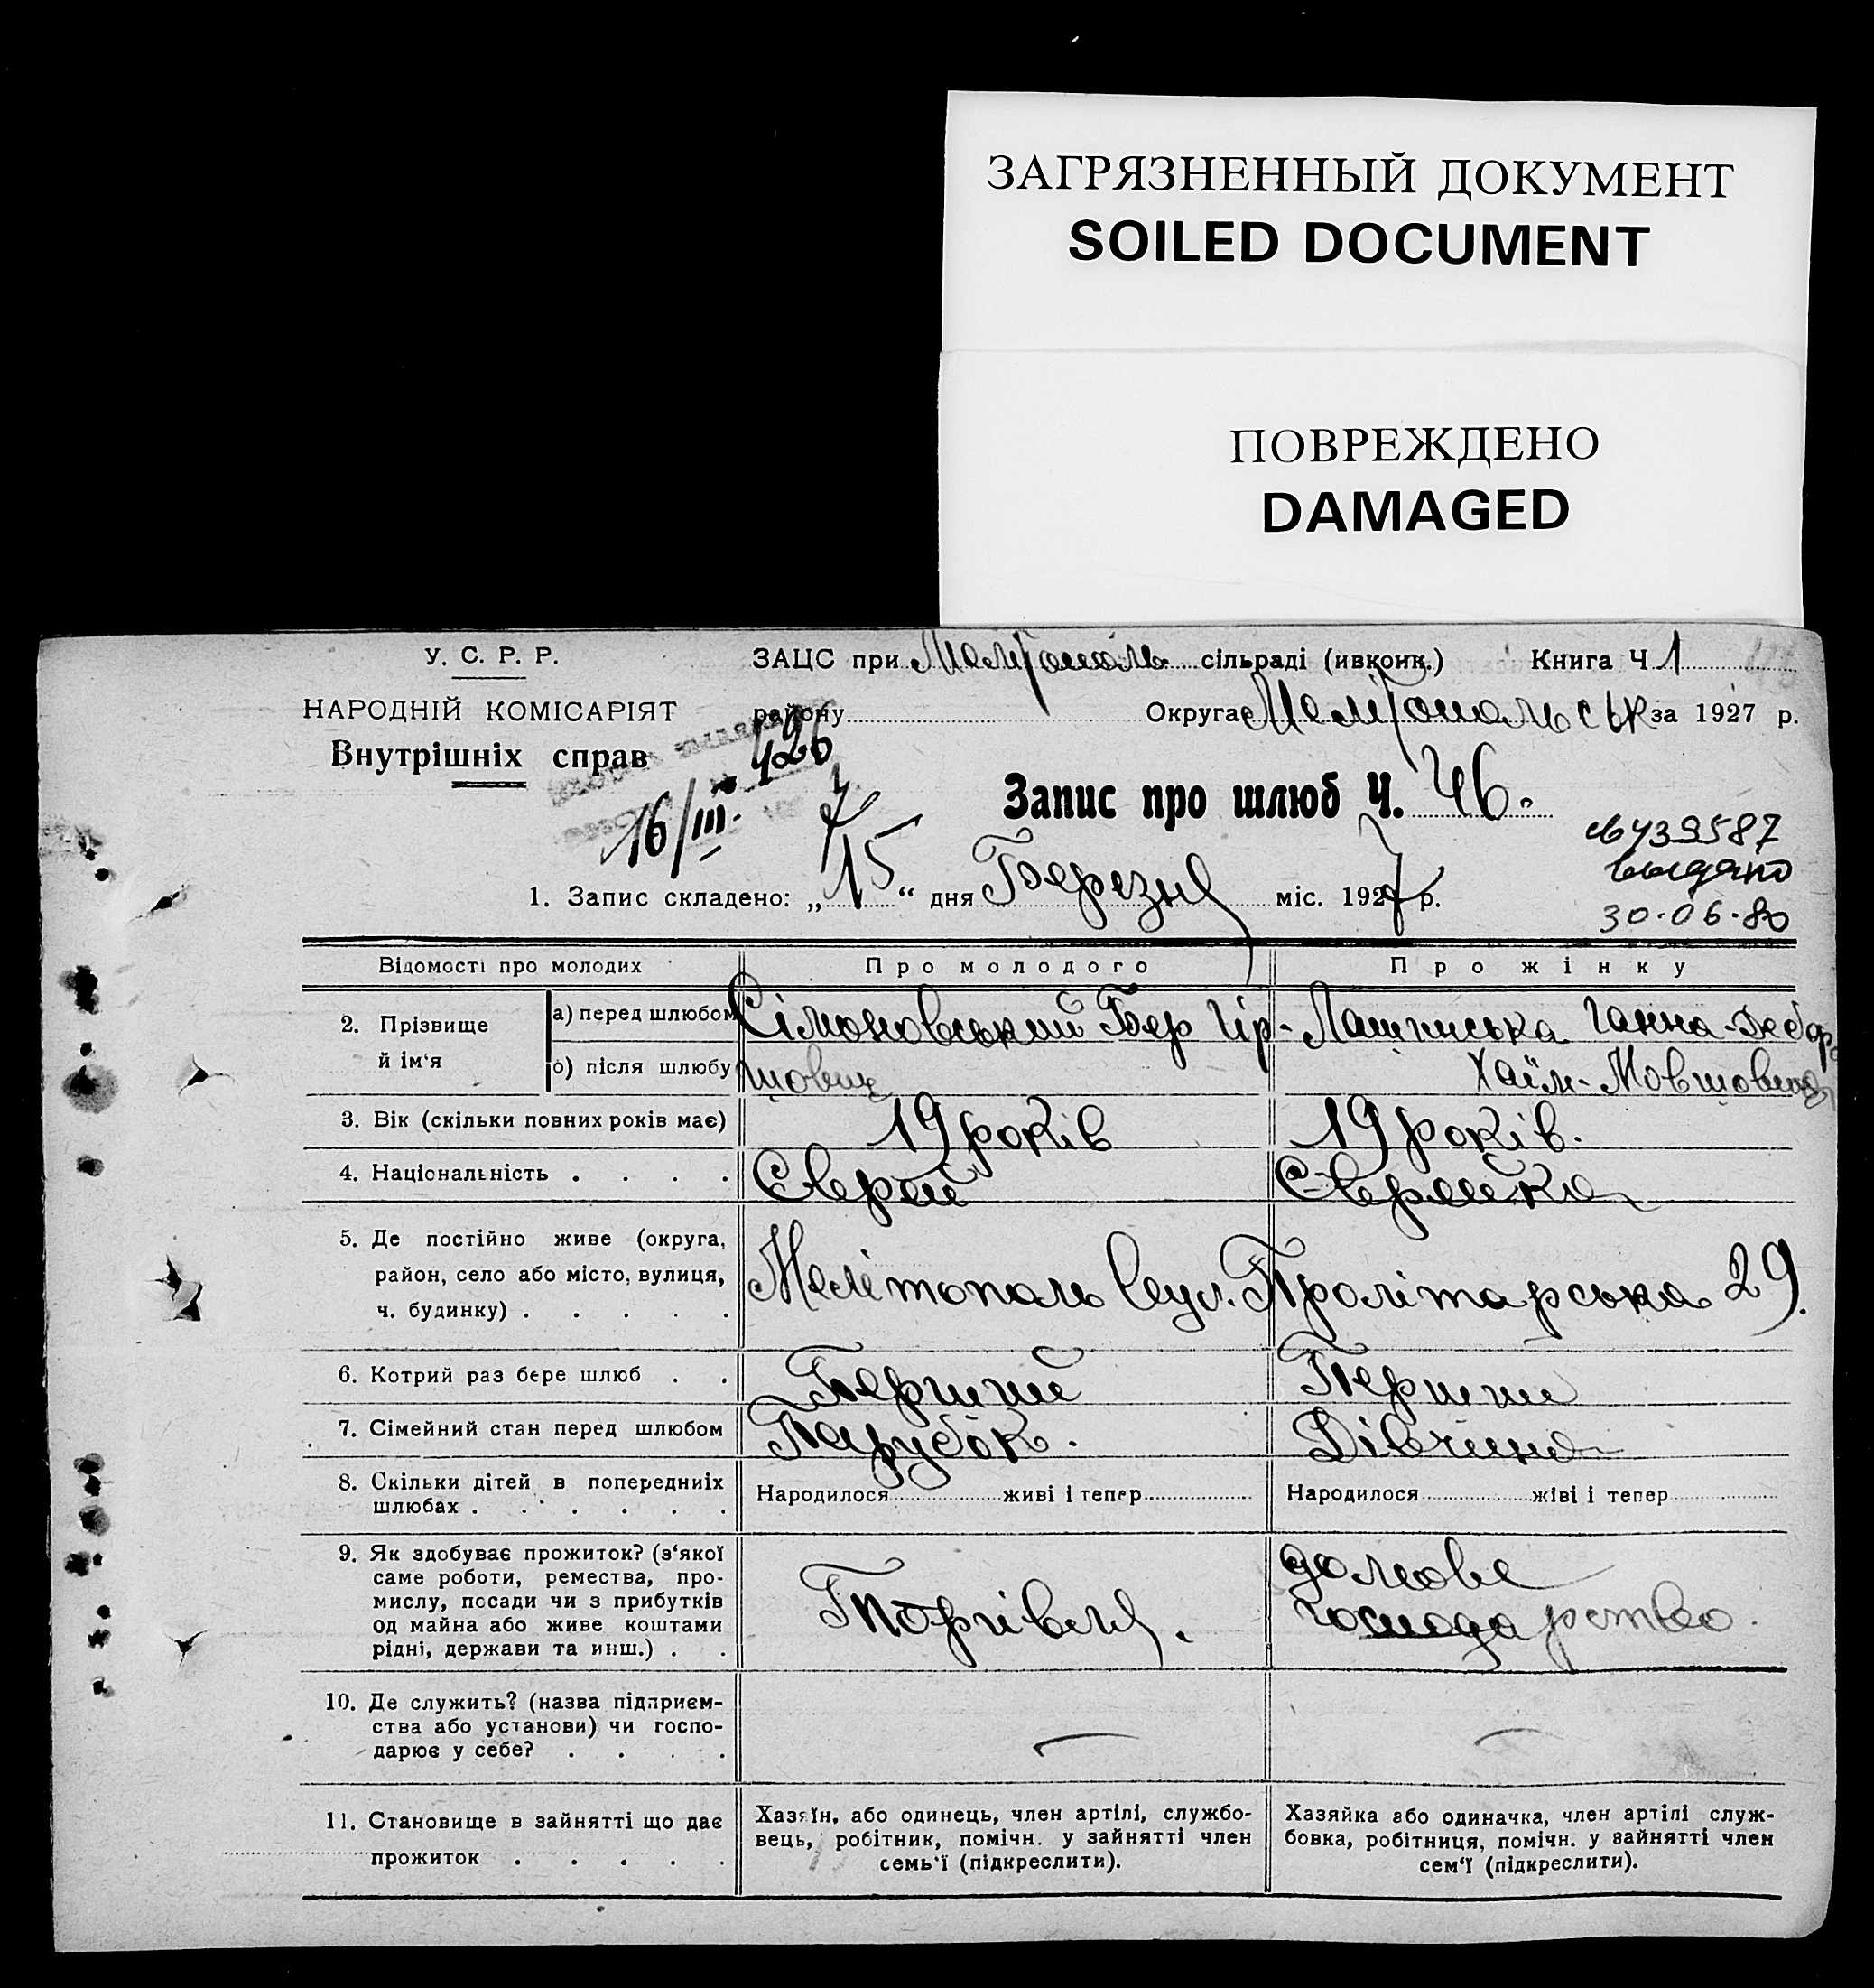 ЗАГРЯЗНЕННЫЙ ДОКУМЕНТ
SOILED DOCUMENT
ПОВРЕЖДЕНО
DAMAGED
У. С. Р. Р.
НАРОДНІЙ КОМІСАРІЯТ
Внутрішніх справ
ЗАЦС при Мелітополь сільраді (ивконк.) Книга Ч 1
району Округа Мелітопольськ за 1927 р.
426
16/III.
Запис про шлюб Ч. 46.
№439587
выдано
30.06.80
1. Запис складено: „15“ дня Березня міс. 1927 р.
Відомості про молодих
Про молодого
Про жінку
2. Прізвище й ім'я
а) перед шлюбом
б) після шлюбу
Сімоновський Бер Гір-
шович
Лащинська Ганна-Дебора
Хаїм-Мовшовна
3. Вік (скільки повних років має)
19 років
19 років.
4. Національність . . . .
Єврей
Єврейка
5. Де постійно живе (округа,
район, село або місто, вулиця,
ч. будинку) . . . . .
Мелітополь вул. Пролітарська 29.
6. Котрий раз бере шлюб . .
Перший
Перший
7. Сімейний стан перед шлюбом
Парубок.
Дівчина
8. Скільки дітей в попередниіх
шлюбах . . . . . .
Народилося живі і тепер
Народилося жіві і тепер
9. Як здобуває прожиток? (з'якої
саме роботи, ремества, про-
мислу, посади чи з прибутків
од майна або живе коштами
рідні, держави та инш.) . .
Торгівля.
домове
господарство.
10. Де служить? (назва підприєм-
ства або установи) чи госпо-
дарює у себе? . . . .
11. Становище в зайнятті що дає
прожиток . . . . .
Хазяїн, або одинець, член артілі, службо-
вець, робітник, помічн. у зайнятті член
семь'ї (підкреслити).
Хазяйка або одиначка, член артілі служ-
бовка, робітниця, помічн. у зайнятті член
сем'ї (підкреслити).